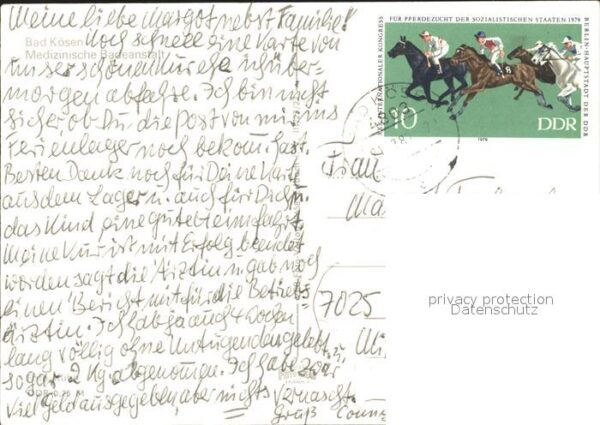 Meine liebe Margot nebst Familie!
Bad Kösen
Medizinische Badeanstalt
Noch schnell eine Karte von
unserer schönen Kur ehe ich über-
morgen abfahre. Ich bin nicht
sicher ob Du die Post von mir ins
Ferienlager noch bekom. hast.
Besten Dank noch für Deine Karte
aus dem Lager u. auch für Dich u.
das Kind eine gute Heimfahrt.
Meine Kur ist mit Erfolg beendet
worden sagt die Ärztin u. gab noch
einen Bericht mit für die Betriebs
ärztin. Ich hab ja auch 4 Wochen
lang völlig ohne Untugenden gelebt u.
sogar 2 Kg. abgenommen. Ich habe zwar
viel Geld ausgegeben aber nichts vernascht.
Gruß
INTERNATIONALER KONGRESS FÜR PFERDEZUCHT DER SOZIALISTISCHEN STAATEN 1979
BERLIN-HAUPTSTADT DER DDR
10
DDR
1979
Frau
7025
privacy protection
Datenschutz